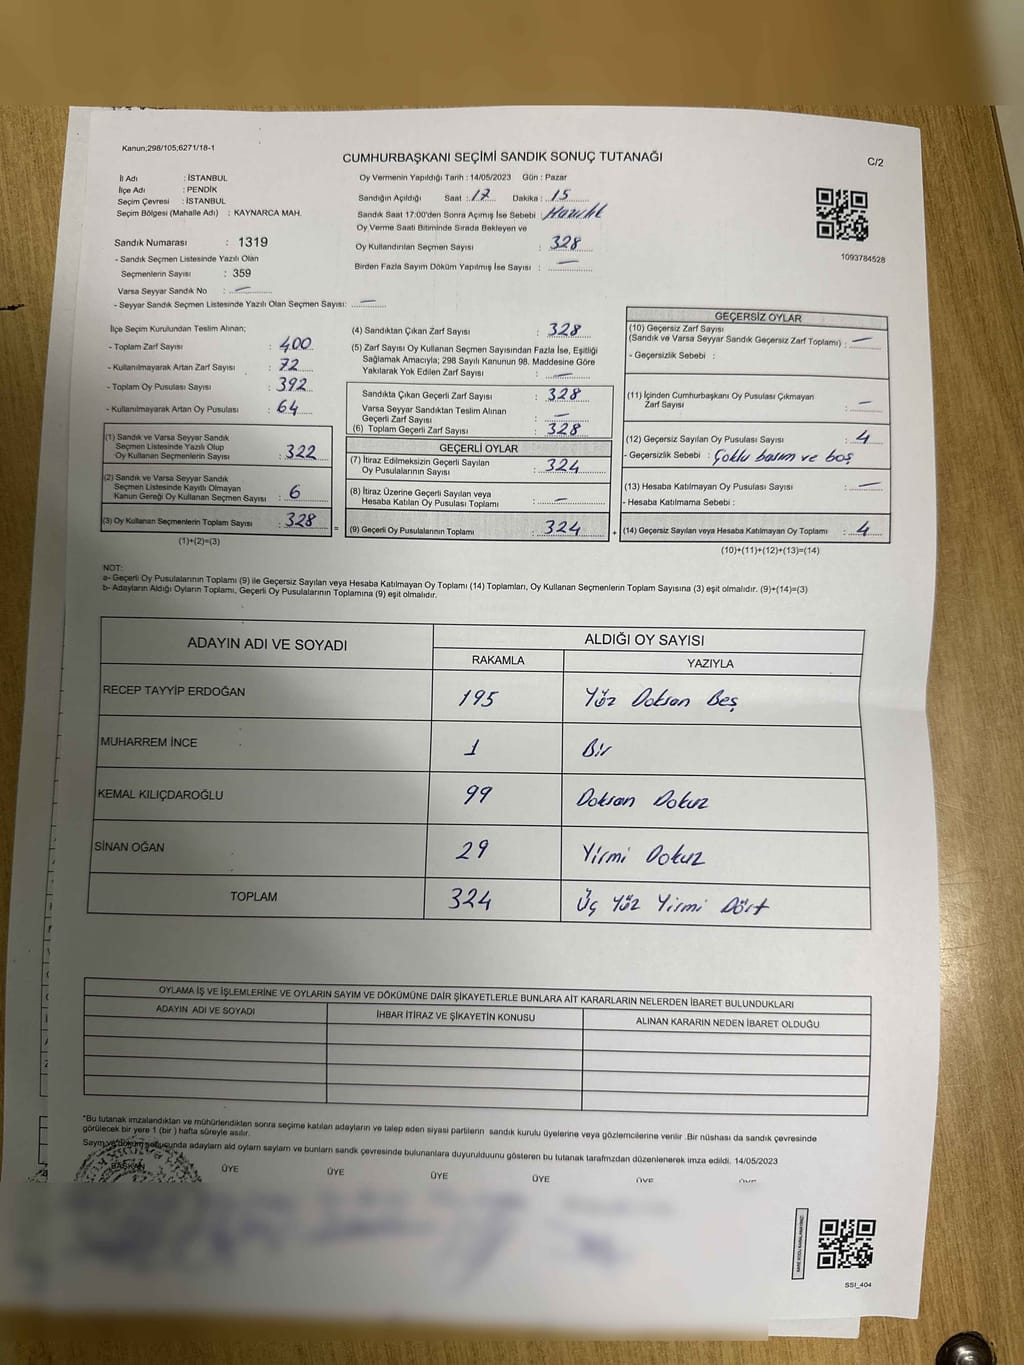 Kanun;298/105;6271/18-1
CUMHURBAŞKANI SEÇİMİ SANDIK SONUÇ TUTANAĞI
C/2
İl Adı : İSTANBUL
İlçe Adı : PENDİK
Seçim Çevresi : İSTANBUL
Seçim Bölgesi (Mahalle Adı) : KAYNARCA MAH.
Sandık Numarası : 1319
- Sandık Seçmen Listesinde Yazılı Olan
Seçmenlerin Sayısı : 359
Varsa Seyyar Sandık No : —
- Seyyar Sandık Seçmen Listesinde Yazılı Olan Seçmen Sayısı: —
Oy Vermenin Yapıldığı Tarih : 14/05/2023 Gün : Pazar
Sandığın Açıldığı Saat : 17 Dakika : 15
Sandık Saat 17:00'den Sonra Açımış İse Sebebi
Oy Verme Saati Bitiminde Sırada Bekleyen ve
Oy Kullandırılan Seçmen Sayısı : 328
Birden Fazla Sayım Döküm Yapılmış İse Sayısı : —
1093784528
İlçe Seçim Kurulundan Teslim Alınan;
- Toplam Zarf Sayısı : 400
- Kullanılmayarak Artan Zarf Sayısı : 72
- Toplam Oy Pusulası Sayısı : 392
- Kullanılmayarak Artan Oy Pusulası : 64
(1) Sandık ve Varsa Seyyar Sandık
Seçmen Listesinde Yazılı Olup
Oy Kullanan Seçmenlerin Sayısı : 322
(2) Sandık ve Varsa Seyyar Sandık
Seçmen Listesinde Kayıtlı Olmayan
Kanun Gereği Oy Kullanan Seçmen Sayısı : 6
(3) Oy Kullanan Seçmenlerin Toplam Sayısı : 328
(1)+(2)=(3)
=
(4) Sandıktan Çıkan Zarf Sayısı : 328
(5) Zarf Sayısı Oy Kullanan Seçmen Sayısından Fazla İse, Eşitliği
Sağlamak Amacıyla; 298 Sayılı Kanunun 98. Maddesine Göre
Yakılarak Yok Edilen Zarf Sayısı : —
Sandıkta Çıkan Geçerli Zarf Sayısı : 328
Varsa Seyyar Sandıktan Teslim Alınan
Geçerli Zarf Sayısı : —
(6) Toplam Geçerli Zarf Sayısı : 328
GEÇERLİ OYLAR
(7) İtiraz Edilmeksizin Geçerli Sayılan
Oy Pusulalarının Sayısı : 324
(8) İtiraz Üzerine Geçerli Sayılan veya
Hesaba Katılan Oy Pusulası Toplamı : —
(9) Geçerli Oy Pusulalarının Toplamı : 324
+
GEÇERSİZ OYLAR
(10) Geçersiz Zarf Sayısı
(Sandık ve Varsa Seyyar Sandık Geçersiz Zarf Toplamı) : —
- Geçersizlik Sebebi :
(11) İçinden Cumhurbaşkanı Oy Pusulası Çıkmayan
Zarf Sayısı : —
(12) Geçersiz Sayılan Oy Pusulası Sayısı : 4
- Geçersizlik Sebebi : Çoklu basım ve boş
(13) Hesaba Katılmayan Oy Pusulası Sayısı : —
- Hesaba Katılmama Sebebi :
(14) Geçersiz Sayılan veya Hesaba Katılmayan Oy Toplamı : 4
(10)+(11)+(12)+(13)=(14)
NOT:
a- Geçerli Oy Pusulalarının Toplamı (9) ile Geçersiz Sayılan veya Hesaba Katılmayan Oy Toplamı (14) Toplamları, Oy Kullanan Seçmenlerin Toplam Sayısına (3) eşit olmalıdır. (9)+(14)=(3)
b- Adayların Aldığı Oyların Toplamı, Geçerli Oy Pusulalarının Toplamına (9) eşit olmalıdır.
ADAYIN ADI VE SOYADI ALDIĞI OY SAYISI
RAKAMLA YAZIYLA
RECEP TAYYİP ERDOĞAN 195 Yüz Doksan Beş
MUHARREM İNCE 1 Bir
KEMAL KILIÇDAROĞLU 99 Doksan Dokuz
SİNAN OĞAN 29 Yirmi Dokuz
TOPLAM 324 Üç Yüz Yirmi Dört
OYLAMA İŞ VE İŞLEMLERİNE VE OYLARIN SAYIM VE DÖKÜMÜNE DAİR ŞİKAYETLERLE BUNLARA AİT KARARLARIN NELERDEN İBARET BULUNDUKLARI
ADAYIN ADI VE SOYADI İHBAR İTİRAZ VE ŞİKAYETİN KONUSU ALINAN KARARIN NEDEN İBARET OLDUĞU
*Bu tutanak imzalandıktan ve mühürlendikten sonra seçime katılan adayların ve talep eden siyasi partilerin sandık kurulu üyelerine veya gözlemcilerine verilir .Bir nüshası da sandık çevresinde
görülecek bir yere 1 (bir ) hafta süreyle asılır.
Sayım ve döküm sonucunda adayların ald oyların sayların ve bunların sandık çevresinde bulunanlara duyurulduunu gösteren bu tutanak tarafmzdan düzenlenerek imza edildi. 14/05/2023
BAŞKAN ÜYE ÜYE ÜYE ÜYE ÜYE ÜYE
SSI_404